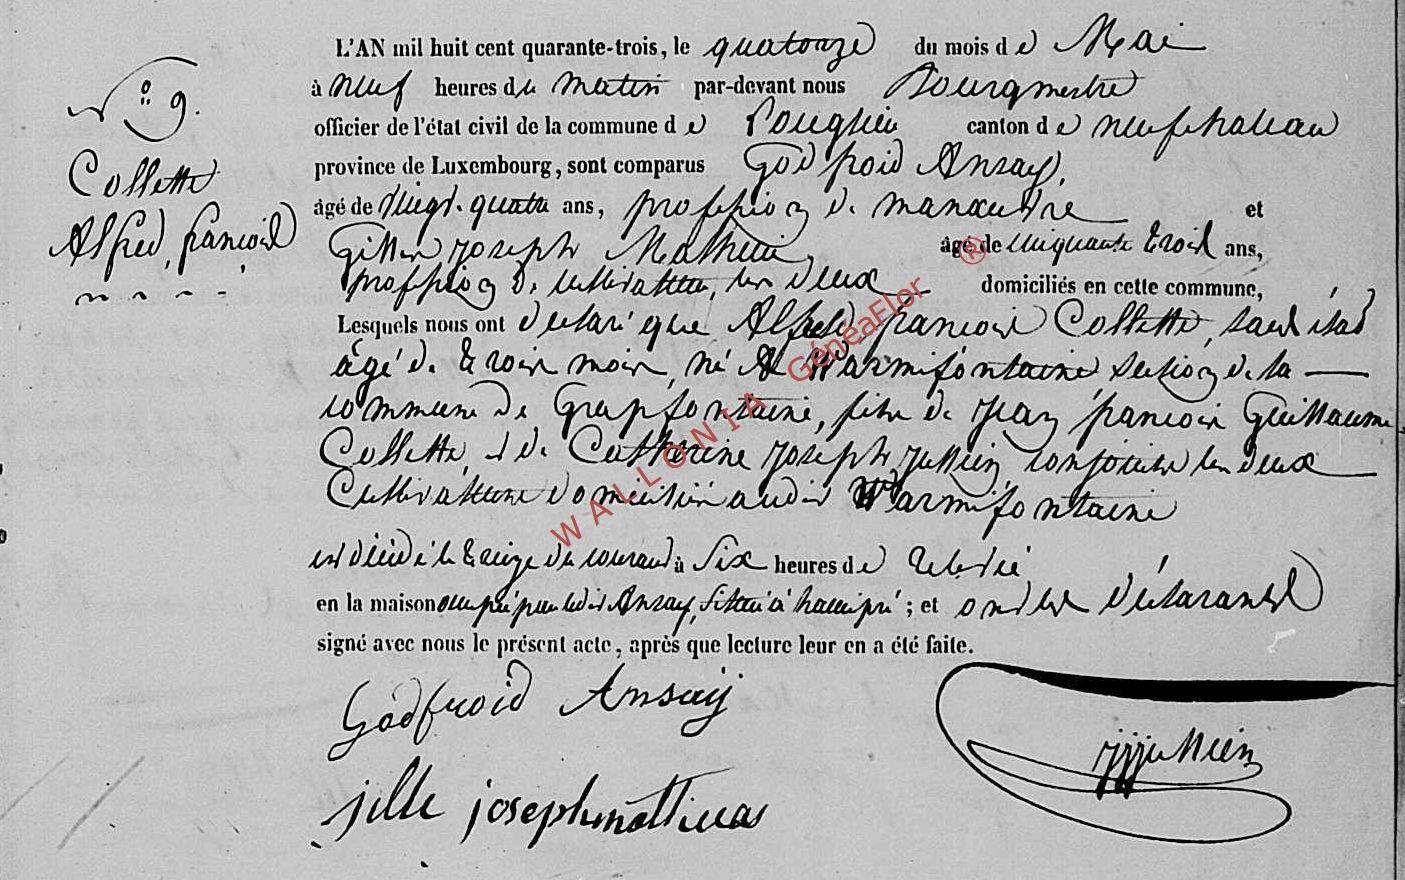 N° 9.
Collette
Alfred, françois
L'AN mil huit cent quarante-trois, le quatorze du mois de Mai
à neuf heures du matin par-devant nous Bourgmestre
officier de l'état civil de la commune de Longlier canton de neufchateau
province de Luxembourg, sont comparus Godfroid Ansay,
âgé de vingt-quatre ans, profession de manœuvre et
Gille joseph Mathieu, âgé de cinquante trois ans,
profession de cultivateur, les deux domiciliés en cette commune,
Lesquels nous ont déclaré que Alfred françois Collette, sans état
âgé de trois mois, né à Warmifontaine section de la
commune de Grapfontaine, fils de jean françois Guillaume
Collette, et de Catherine joseph jullien conjoints les deux
Cultivateurs domiciliés audit Warmifontaine
est décédé le treize du courant à six heures de relevée
en la maison occupée par ledit Ansay, située à hamipré ; et ont les déclarants
signé avec nous le présent acte, après que lecture leur en a été faite.
Godfroid Ansay
jille joseph mathieus
jjjullien
WALLONIA GénéaFlor ®